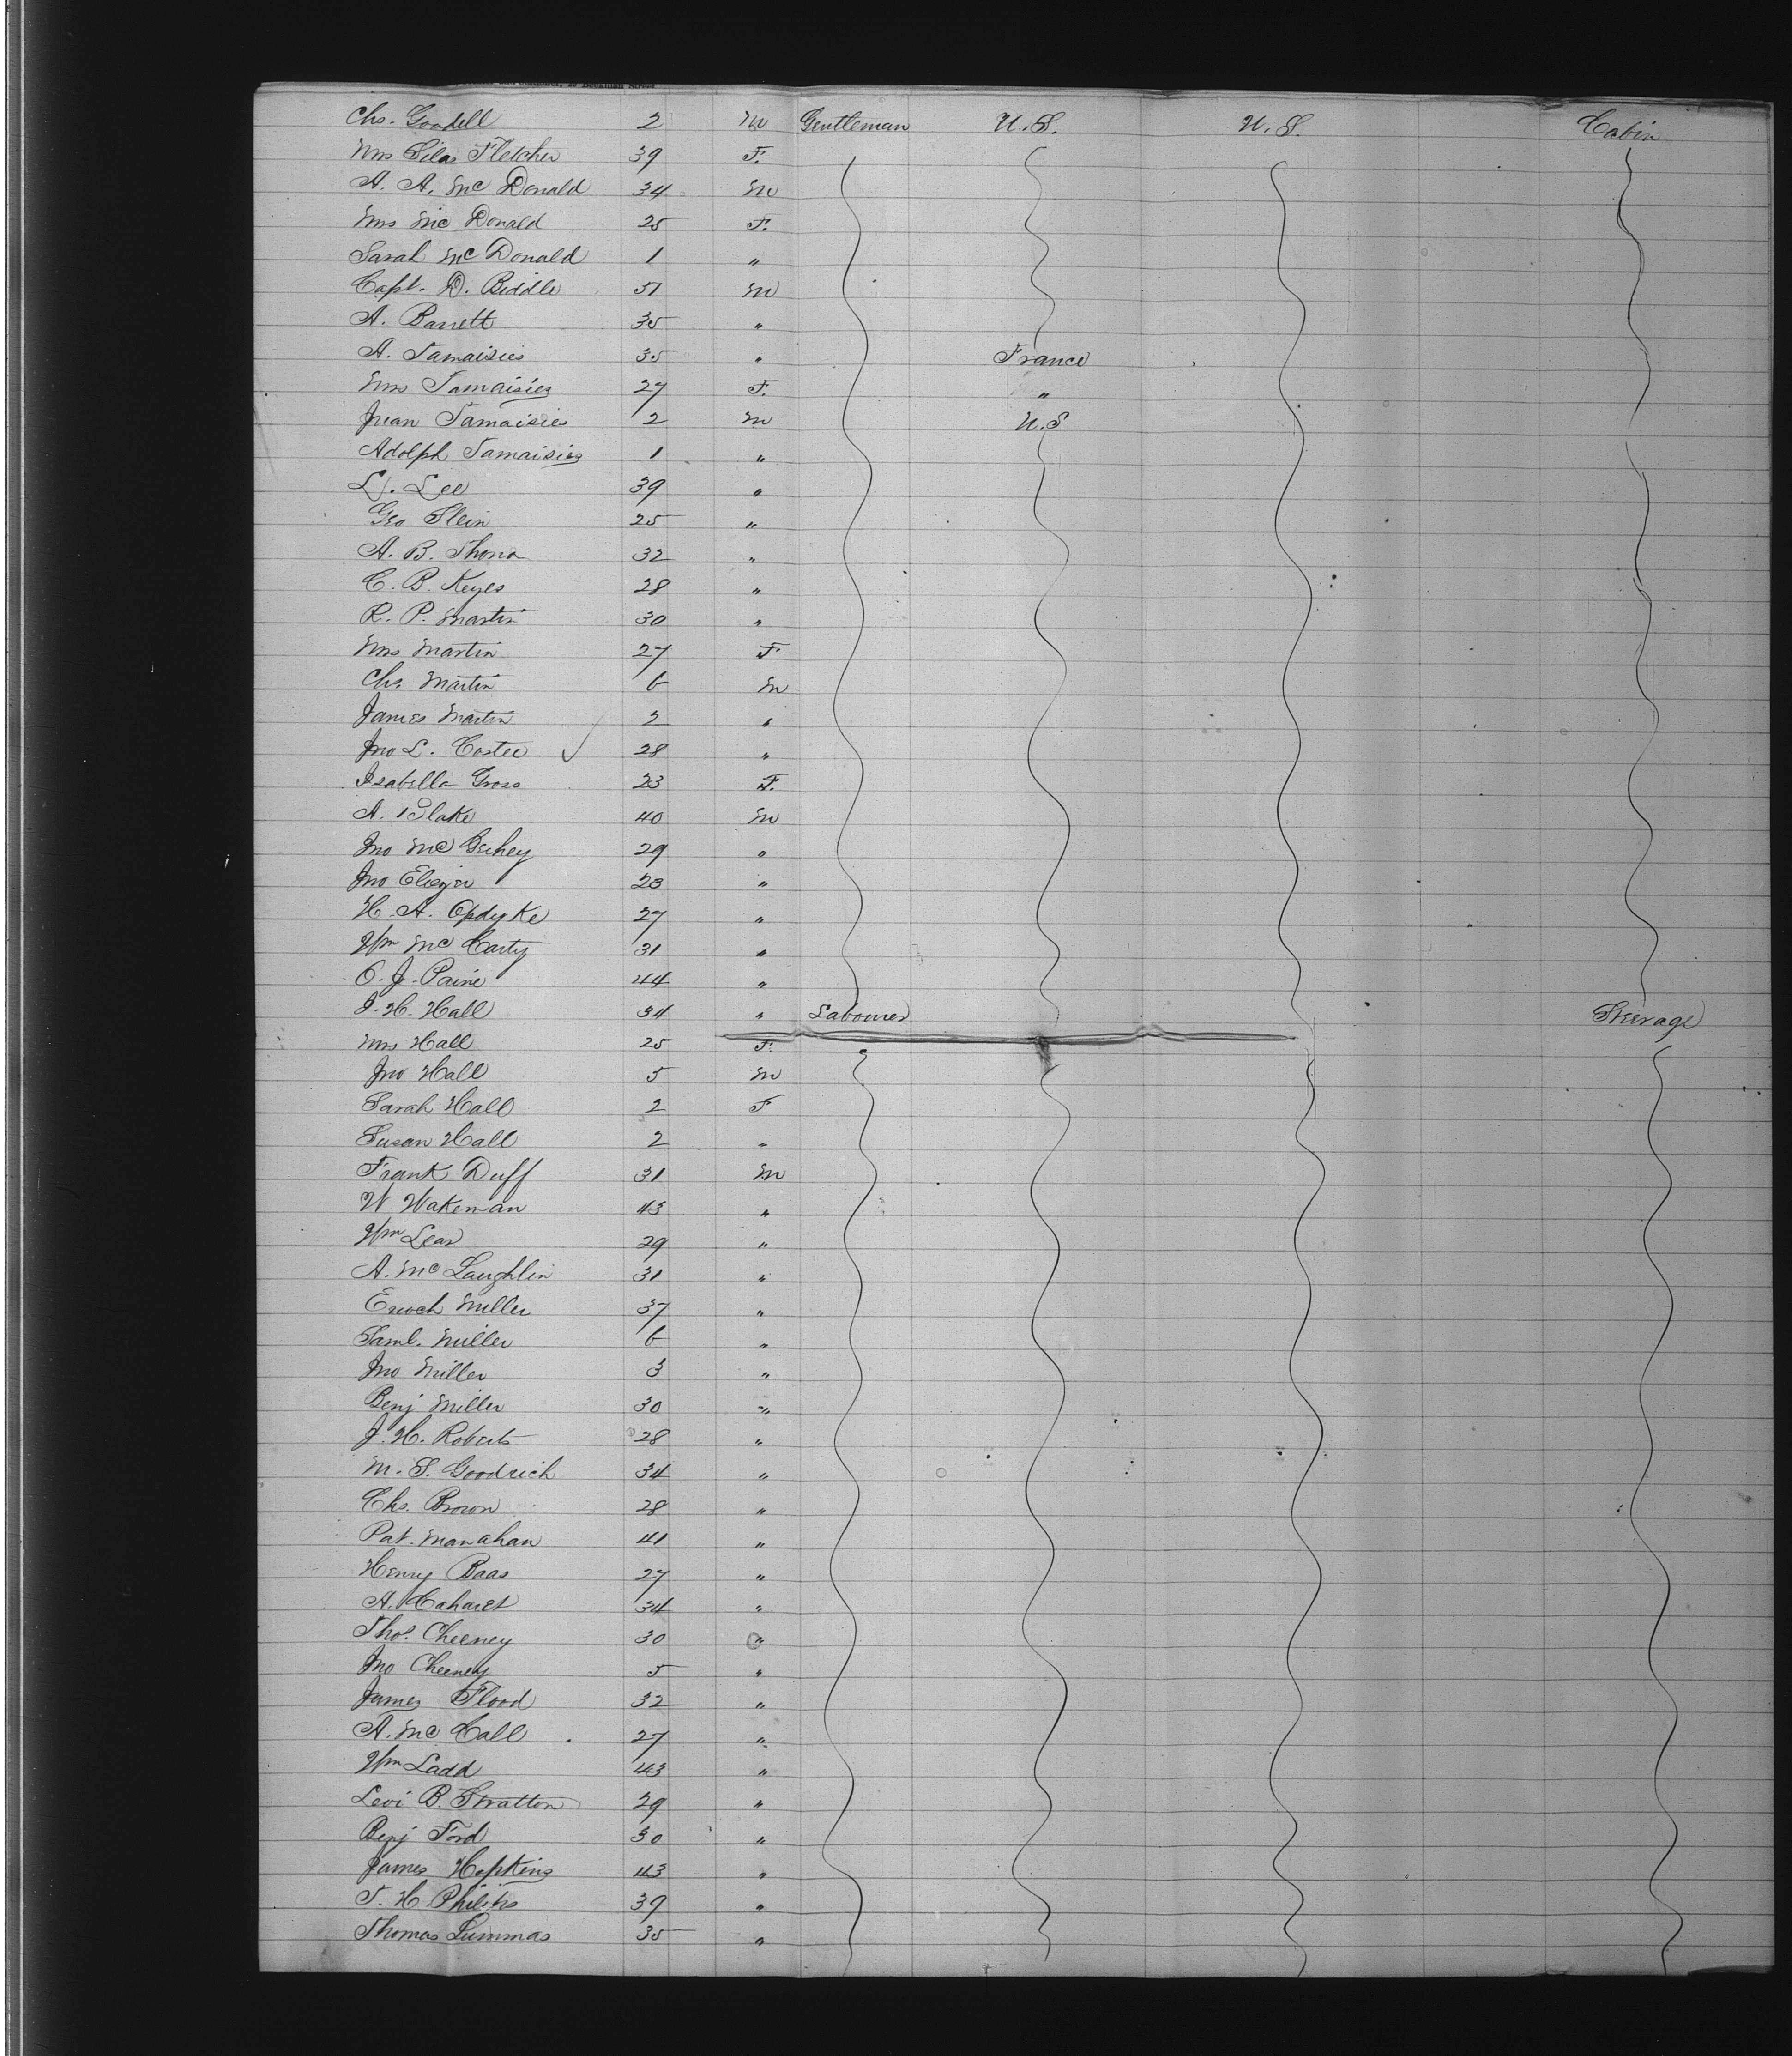 Chs. Goodell 2 M Gentleman U.S. U.S. Cabin
Mrs Silas Fletcher 39 F.
A. A. Mc Donald 34 M
Mrs Mc Donald 25 F.
Sarah Mc Donald 1 "
Capt. D. Biddle 51 M
A. Barrett 35 "
A. Tamaisies 35 " France
Mrs Tamaisies 27 F. "
Juan Tamaisies 2 M U.S
Adolph Tamaisies 1 "
L. Lee 39 "
Geo Stein 25 "
A. B. 32 "
C. B. Keyes 28 "
R. P. Martin 30 "
Mrs Martin 27 F
Chs. Martin 6 M
James Martin 2 "
Jno L. Coster 28 "
Isabella Gross 23 F.
A. Blake 40 M
Jno Mc 29 "
Jno 23 "
H. A. Opdyke 27 "
Wm Mc Carty 31 "
O. J. Paine 44 "
J. H. Hall 34 " Labourer Steerage
Mrs Hall 25 F.
Jno Hall 5 M
Sarah Hall 2 F
Susan Hall 2 "
Frank Duff 31 M
W. Wakeman 43 "
Wm Lear 29 "
A. Mc Laughlin 31 "
Enoch Miller 37 "
Saml. Miller 6 "
Jno Miller 3 "
Benj Miller 30 "
J. H. Roberts 28 "
M. S. Goodrich 34 "
Chs. Brown 28 "
Pat. Manahan 41 "
Henry Baas 27 "
A. 34 "
Thos. Cheeney 30 "
Jno Cheeney 5 "
James Flood 32 "
A. Mc Call 27 "
Wm Ladd 43 "
Levi B. Stratton 29 "
Benj Ford 30 "
James Hopkins 43 "
T. H. 39 "
Thomas Lummas 35 "